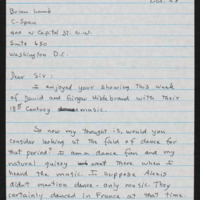 Brian Lamb
C-Span
400 N Capitol St. N.W.
Suite 650
Washington D.C.
Dear Sir:
I enjoyed your showing this week
of David and Ginger Hildebrand with their
18th Century music.
So now my thought is, would you
consider looking at the field of dance for
that period? I am a dance fan and my
natural quizzy went there when I
heard the music. I suppose Alexis
didn't mention dance - only music. They
certainly danced in France at that time.